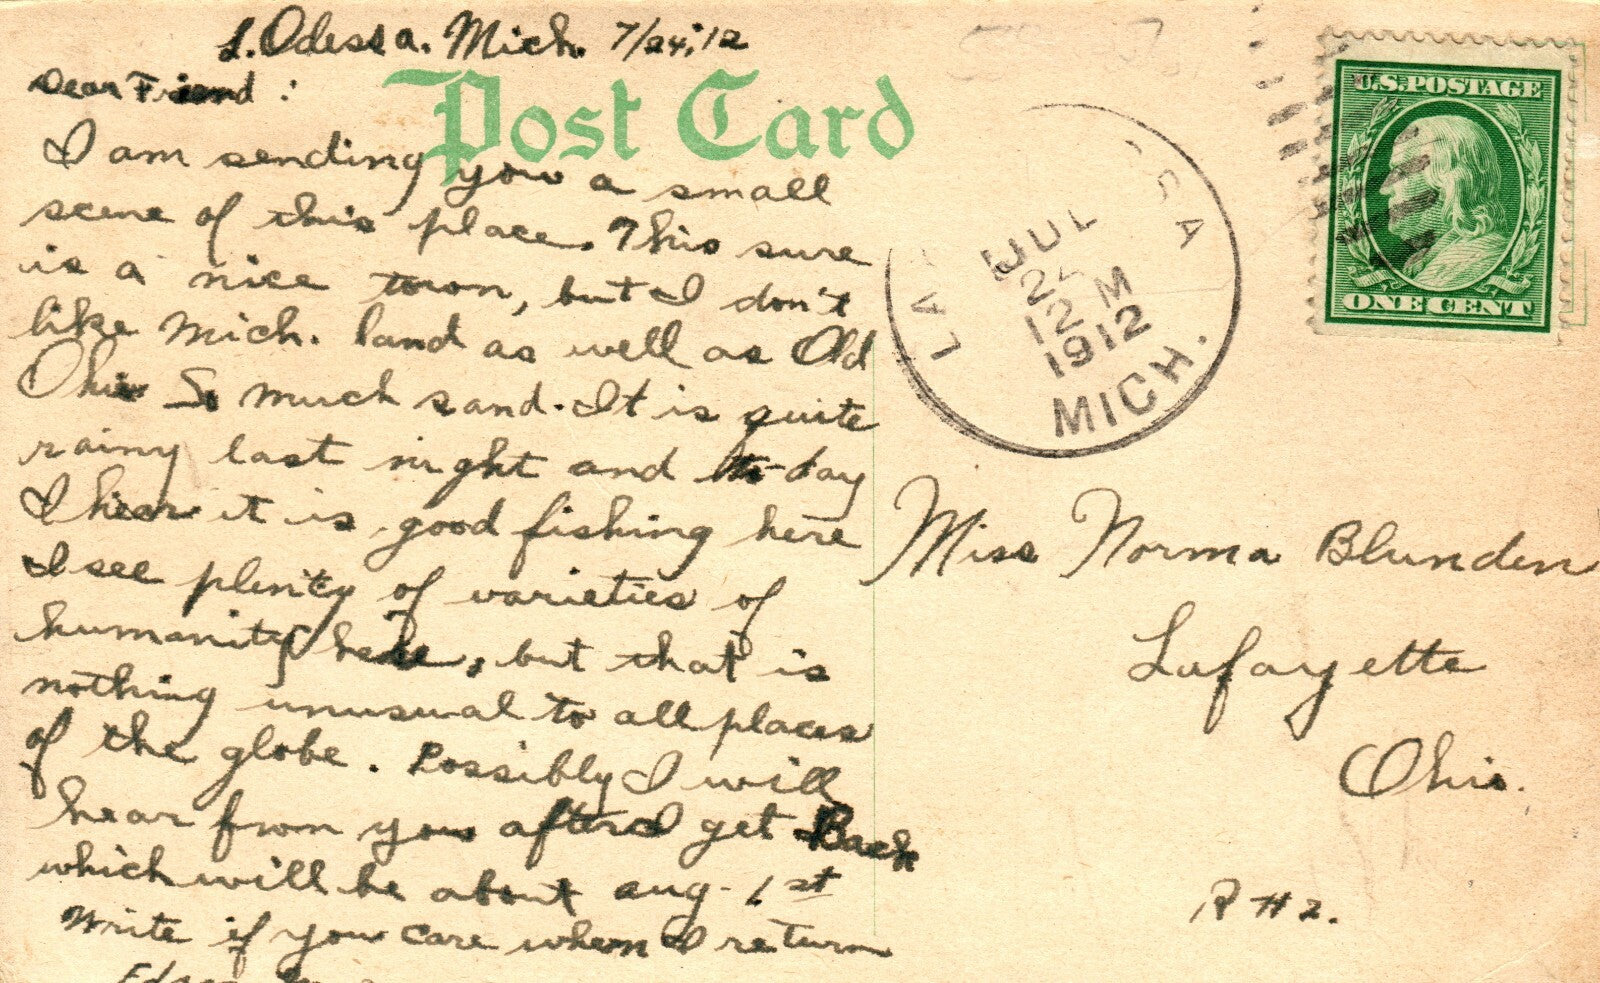 L. Odessa. Mich. 7/24,'12
Dear Friend :
Post Card
I am sending you a small
scene of this place. This sure
is a nice town, but I don't
like Mich. land as well as Old
Ohio So much sand. It is quite
rainy last night and to-day
I hear it is good fishing here
I see plenty of varieties of
humanity here, but that is
nothing unusual to all places
of the globe. Possibly I will
hear from you after I get Back
which will be about Aug. 1st
Write if you care when I return
U.S. POSTAGE
ONE CENT
JUL
12 M
1912
MICH.
Miss Norma Blunden
Lafayette
Ohio.
R #2.